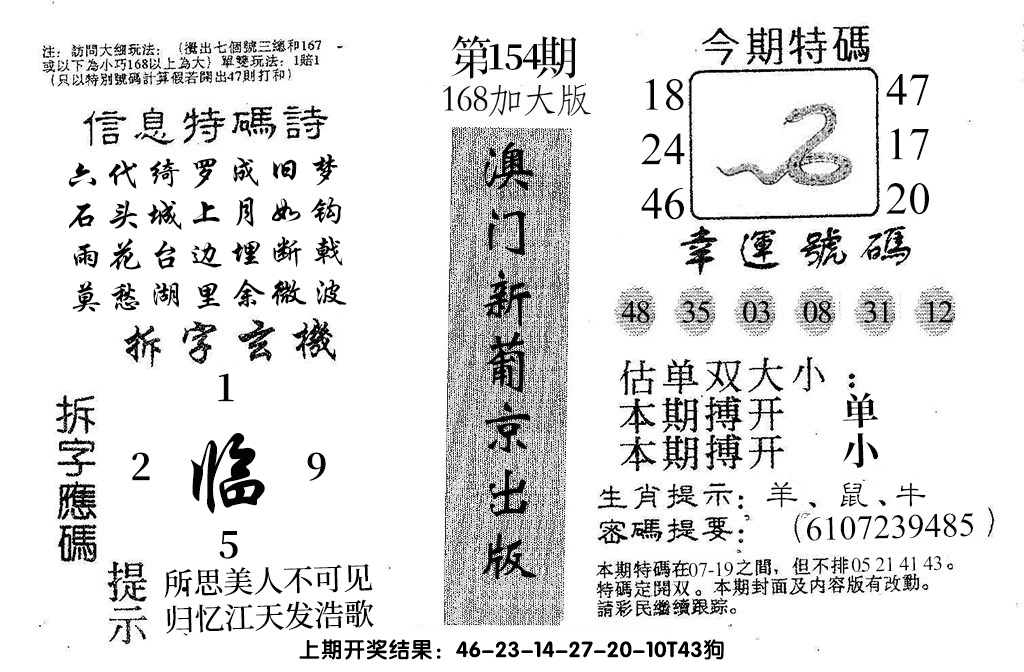 注：訪問大細玩法：（攪出七個號三總和167
或以下為小巧168以上為大）單雙玩法：1賠1
（只以特別號碼計算假若開出47則打和）
信息特碼詩
六代绮罗成旧梦
石头城上月如钩
雨花台边埋断戟
莫愁湖里余微波
拆字玄機
拆字應碼
1
2 临 9
5
提示
所思美人不可见
归忆江天发浩歌
第154期
168加大版
澳门新葡京出版
今期特碼
18 47
24 17
46 20
幸運號碼
48 35 03 08 31 12
估单双大小：
本期搏开 单
本期搏开 小
生肖提示：羊、鼠、牛
密碼提要：（6107239485）
本期特碼在07-19之間，但不排05 21 41 43。
特碼定開双。本期封面及内容版有改動。
請彩民繼續跟踪。
上期开奖结果：46-23-14-27-20-10T43狗